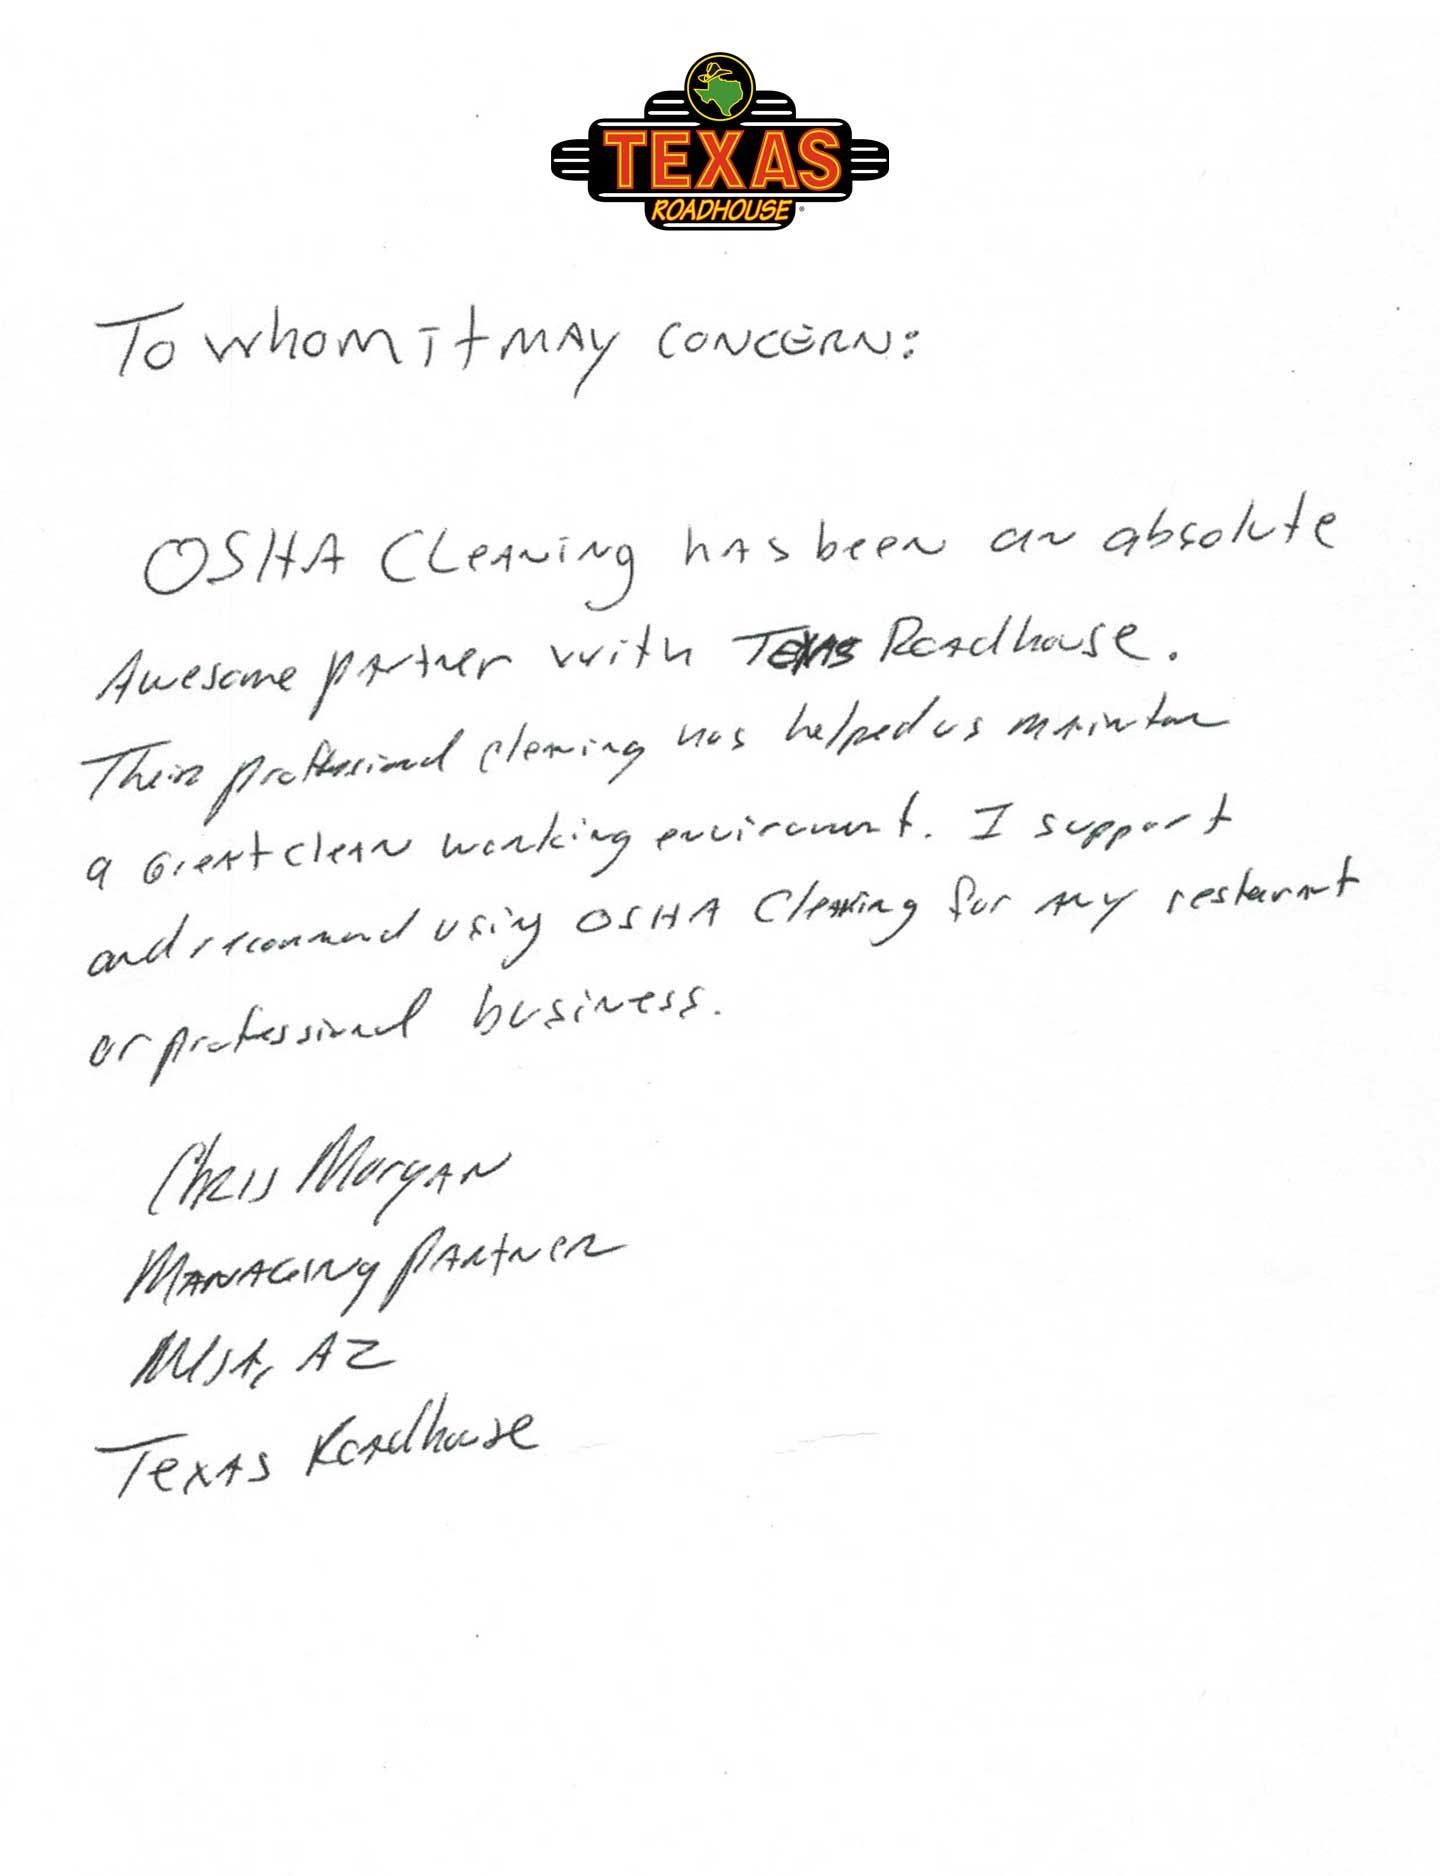 TEXAS
ROADHOUSE®
To whom it may concern:
OSHA Cleaning has been an absolute
Awesome partner with Texas Roadhouse.
Their professional cleaning has helped us maintain
a Great clean working enviroment. I support
and recommend using OSHA Cleaning for any restaurant
or professional business.
Chris Morgan
Managing Partner
Mesa, AZ
Texas Roadhouse